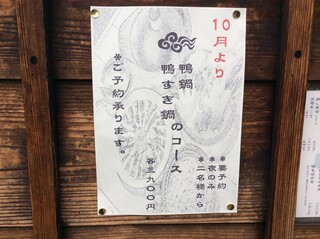 10月より
＊要予約
＊夜のみ
＊二名様から
鴨鍋
鴨すき鍋のコース
各三九〇〇円
＊ご予約承ります。